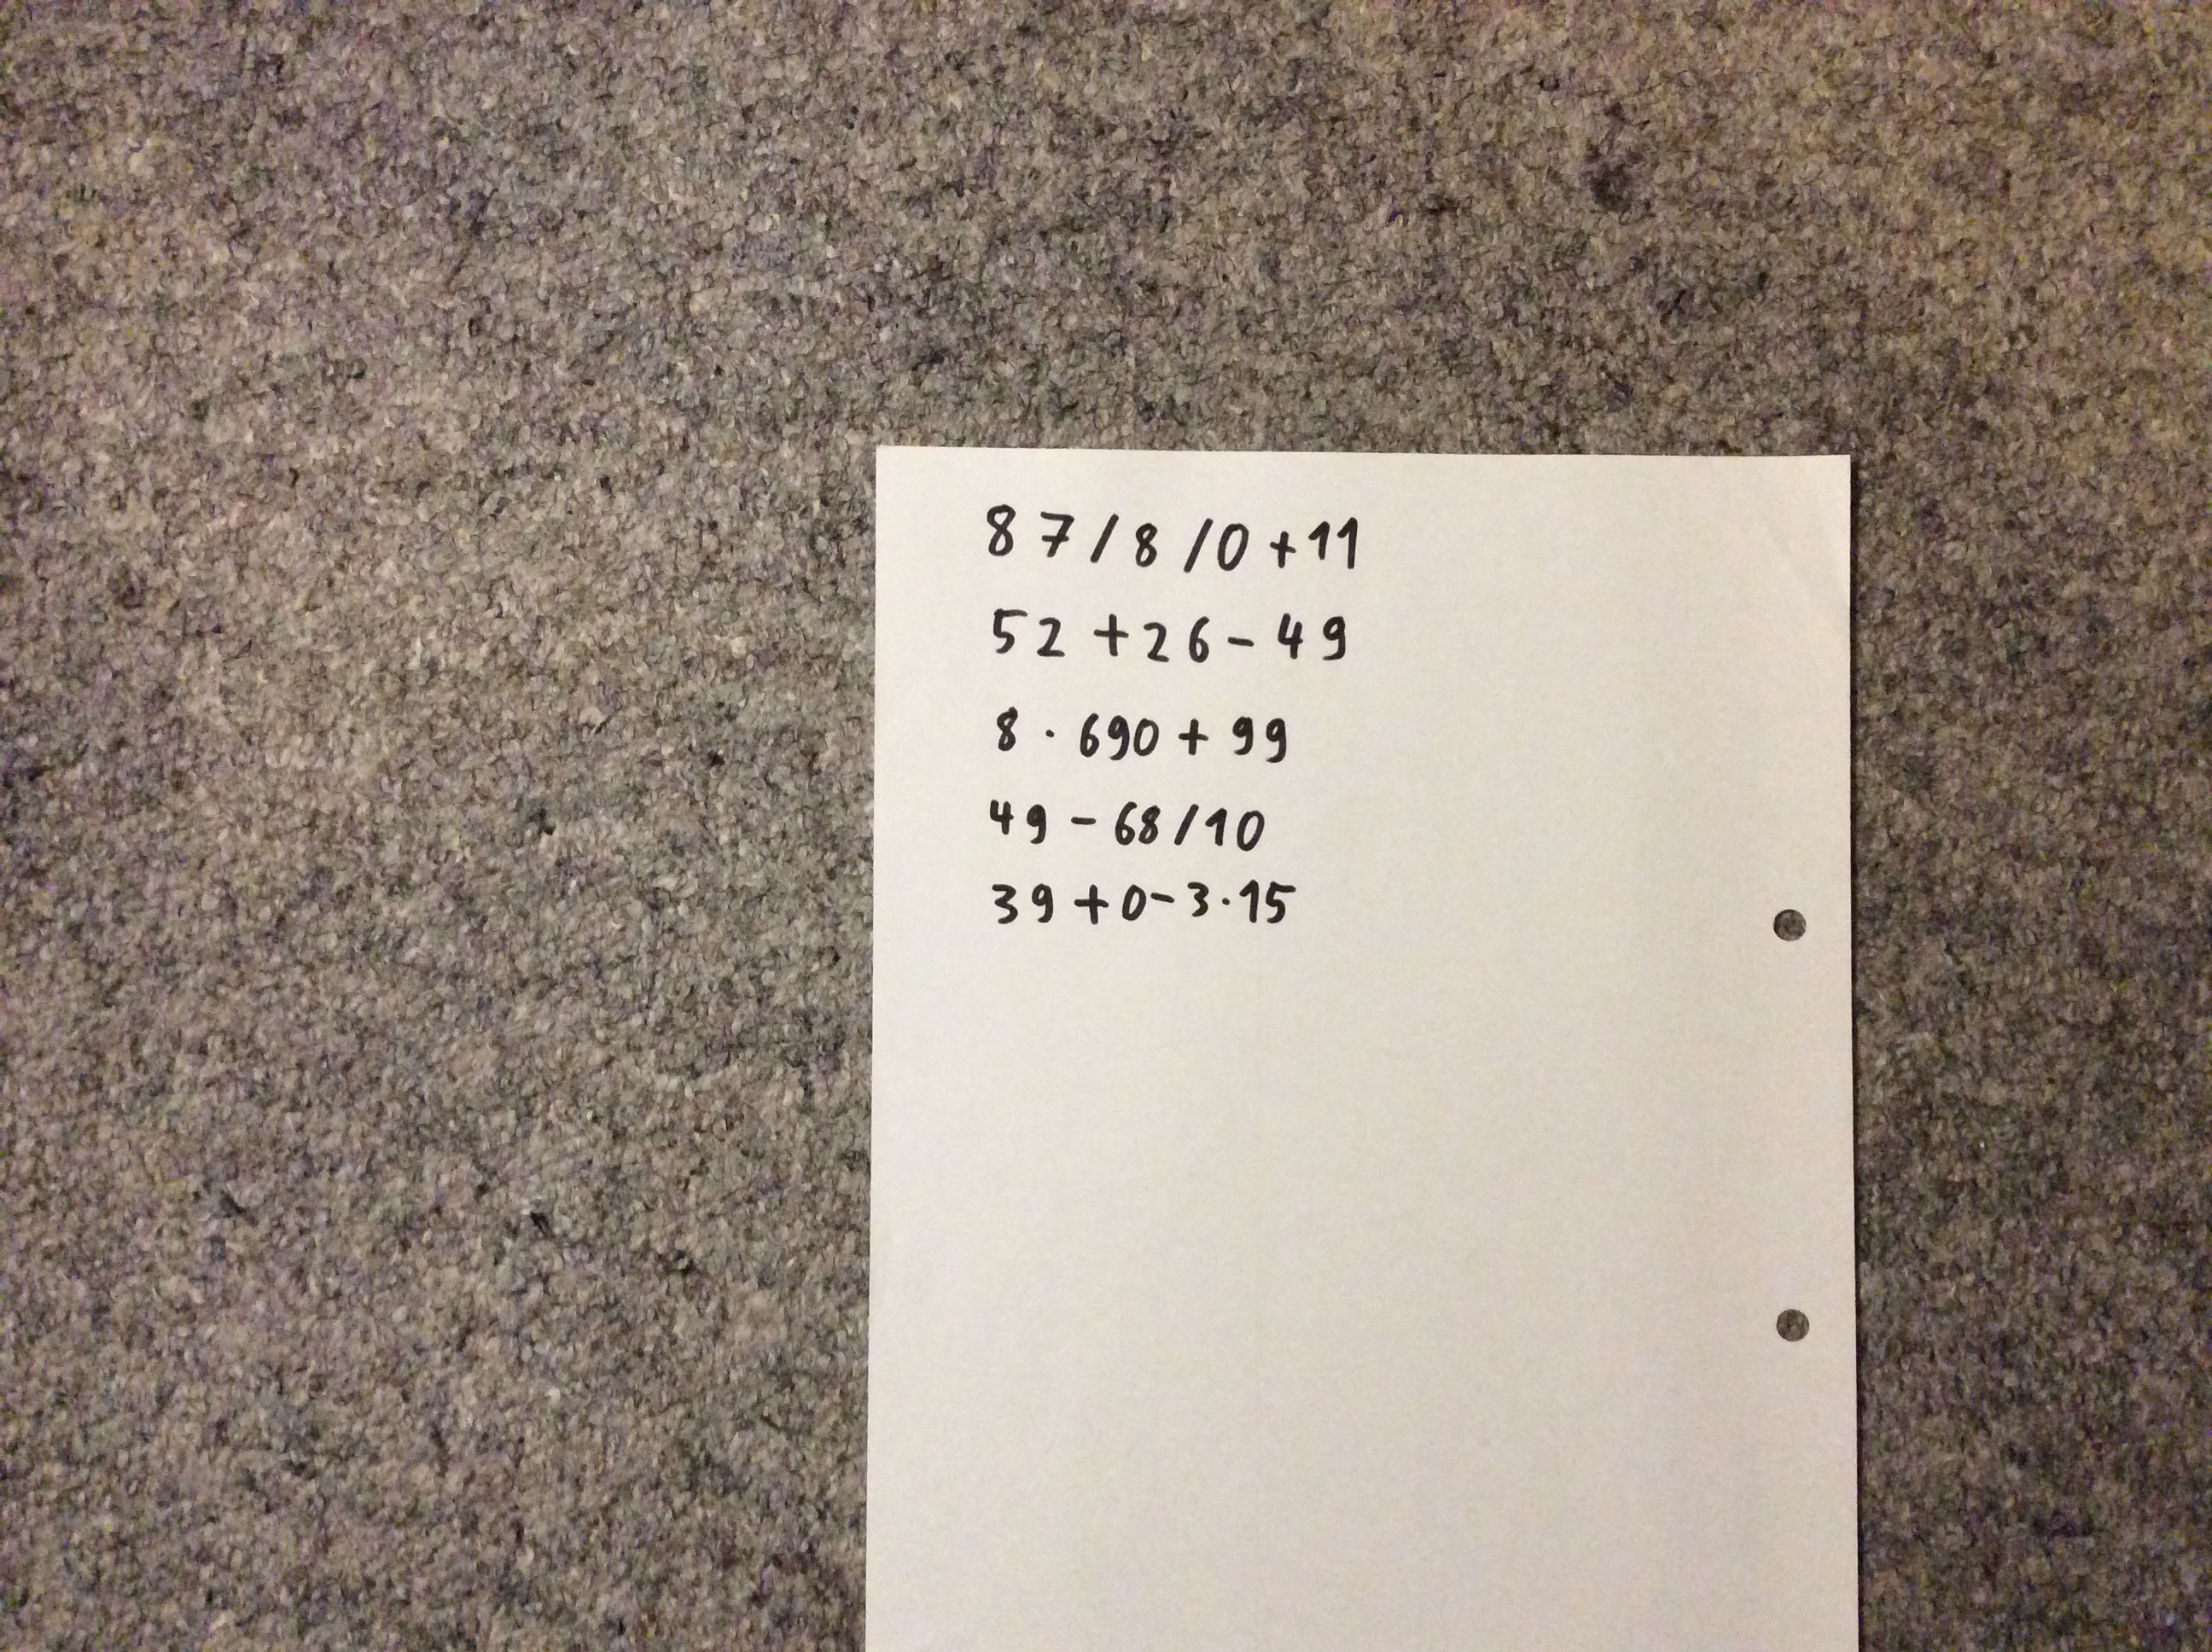 87/8/0+11
52+26-49
8·690+99
49-68/10
39+0-3·15